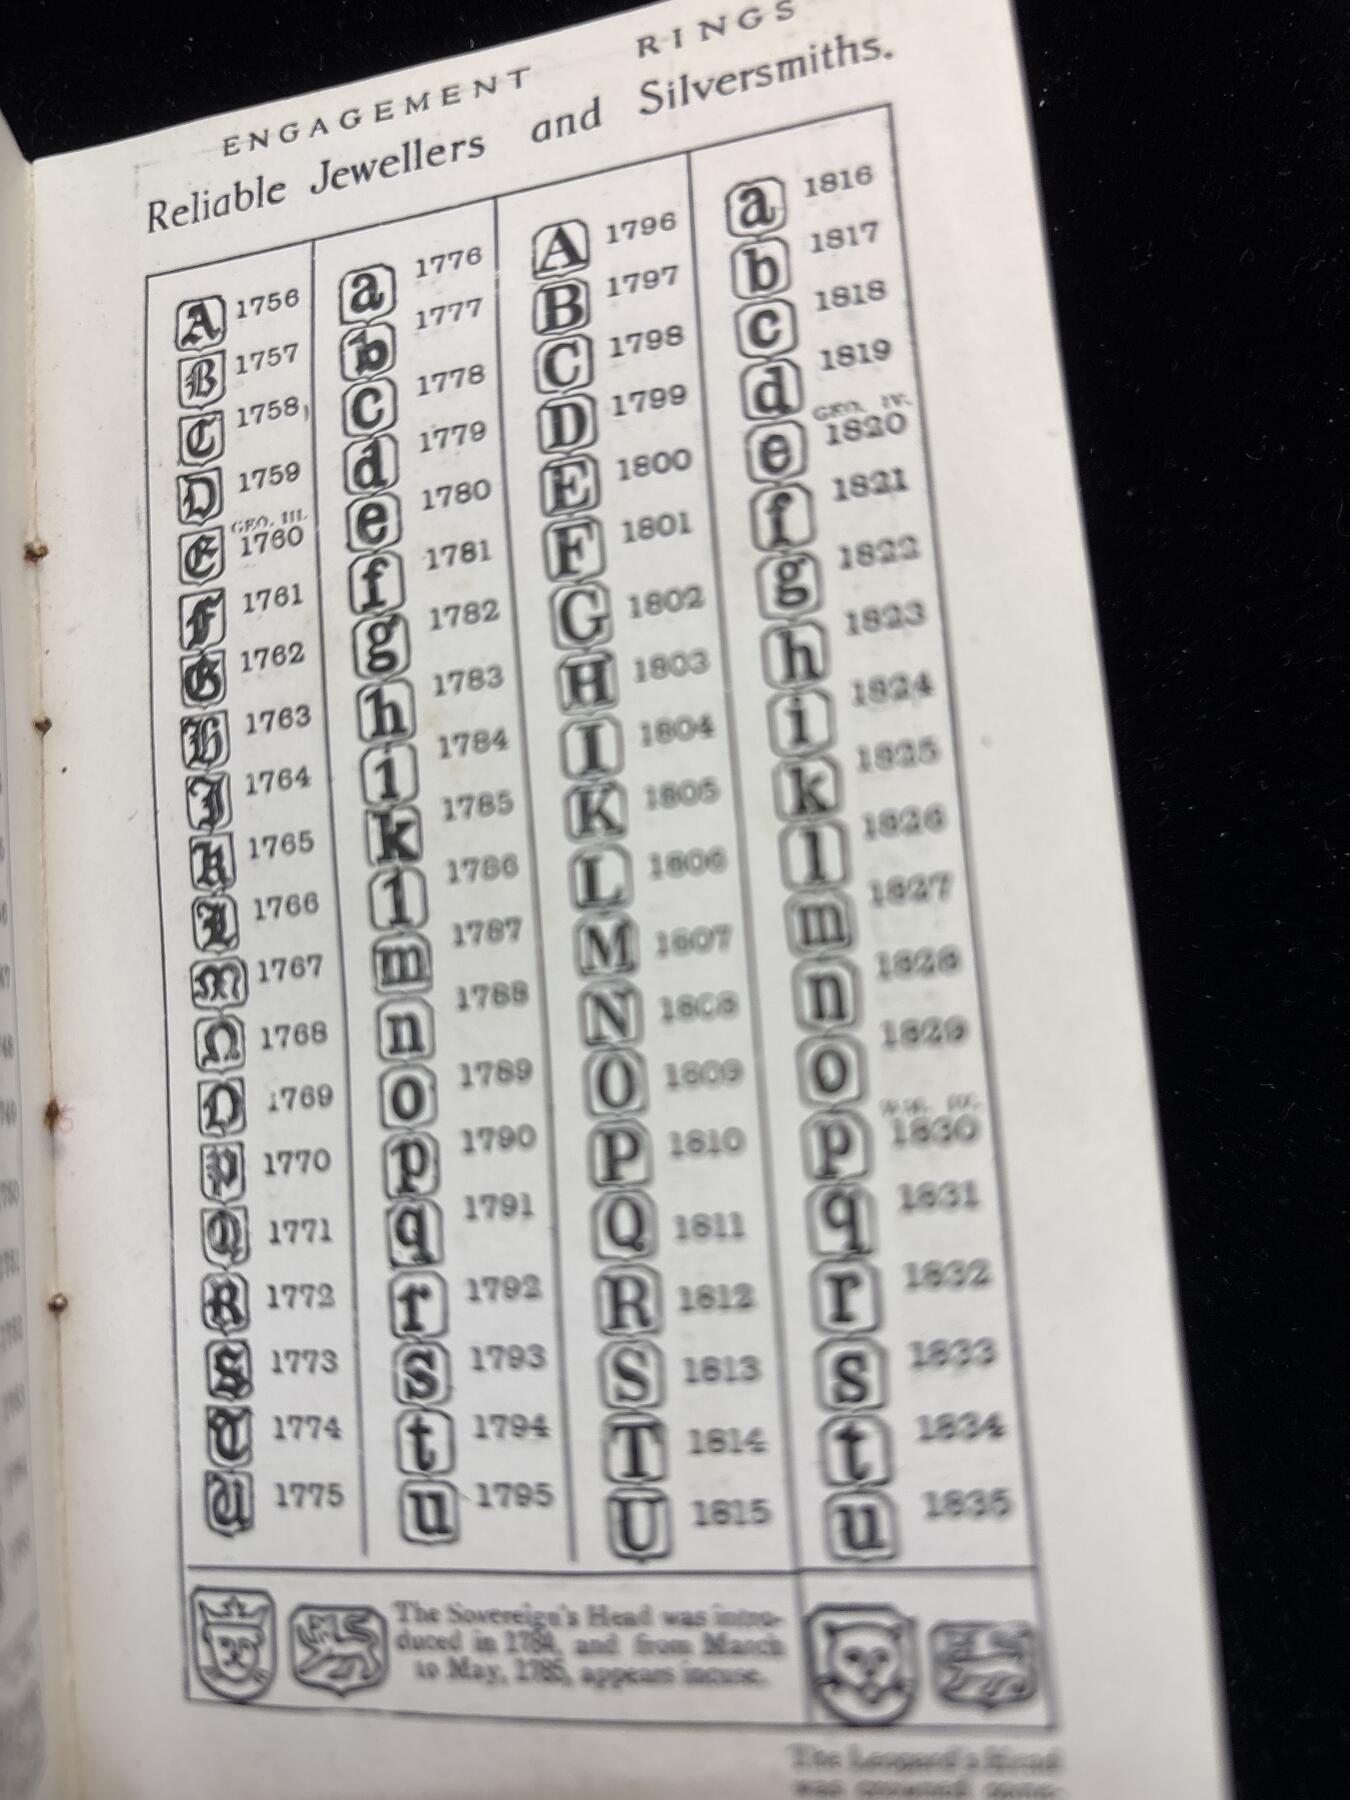 ENGAGEMENT RINGS
Reliable Jewellers and Silversmiths.
A 1756
B 1757
C 1758
D 1759
GEO. III.
E 1760
F 1761
G 1762
H 1763
I 1764
K 1765
L 1766
M 1767
N 1768
O 1769
P 1770
Q 1771
R 1772
S 1773
T 1774
U 1775
a 1776
b 1777
c 1778
d 1779
e 1780
f 1781
g 1782
h 1783
i 1784
k 1785
l 1786
m 1787
n 1788
o 1789
p 1790
q 1791
r 1792
s 1793
t 1794
u 1795
A 1796
B 1797
C 1798
D 1799
E 1800
F 1801
G 1802
H 1803
I 1804
K 1805
L 1806
M 1807
N 1808
O 1809
P 1810
Q 1811
R 1812
S 1813
T 1814
U 1815
a 1816
b 1817
c 1818
d 1819
GEO. IV.
e 1820
f 1821
g 1822
h 1823
i 1824
k 1825
l 1826
m 1827
n 1828
o 1829
WM. IV.
p 1830
q 1831
r 1832
s 1833
t 1834
u 1835
The Sovereign's Head was intro-
duced in 1784, and from March
to May, 1785, appears incuse.
The Leopard's Head
was